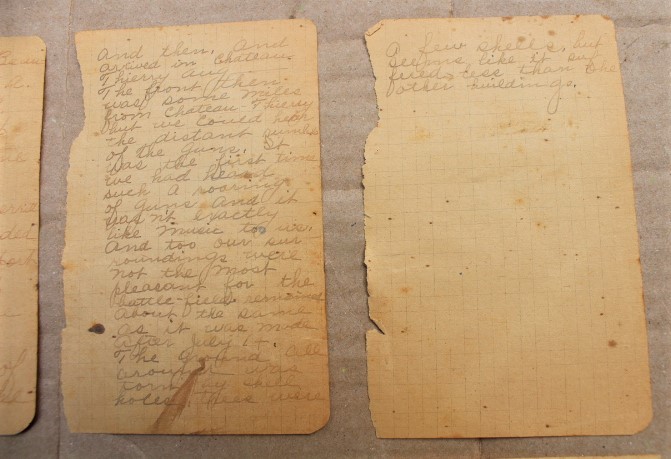 and then, and
arived in Chateau-
Thierry Aug
The front then
was some miles
from Chateau-Thierry
but we could hear
the distant rumble
of the guns. It
was the first time
we had heard
such a roaring
of guns and it
wasn't exactly
like music too us.
And too our sur-
roundings were
not the most
pleasant for the
battle-field remained
about the same
as it was made
after July 14.
The ground all
around was
torn by shell
holes, trees were
A few shells, but
seems like it suf
fered less than the
other buildings.
of